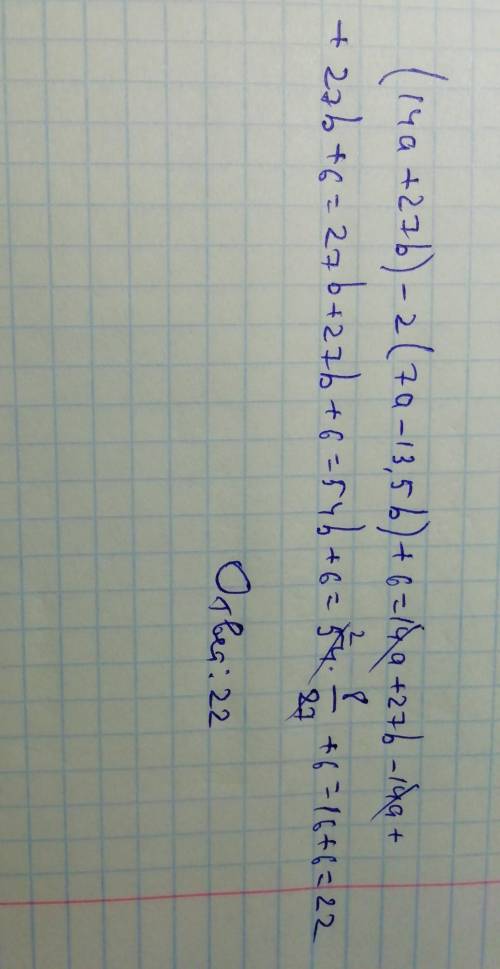 (14a + 27b) - 2(7a - 13,5b) + 6 = 14a + 27b - 14a +
+ 27b + 6 = 27b + 27b + 6 = 54b + 6 = 54 · 8/27 + 6 = 16 + 6 = 22
2
Ответ: 22